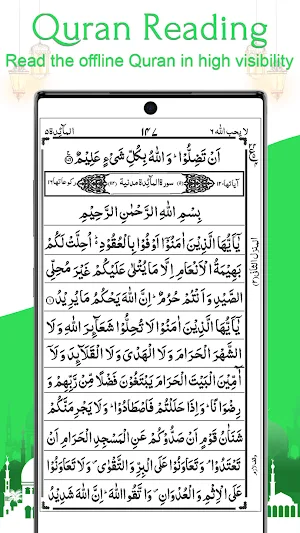 Quran Reading
Read the offline Quran in high visibility
لا یحب اللہ ٦
١٤٧
المآئدة ٥
اَنْ تَضِلُّوْا ؕ وَاللّٰهُ بِكُلِّ شَیْءٍ عَلِیْمٌ
سورة المآئدة مدنية
بِسْمِ اللّٰهِ الرَّحْمٰنِ الرَّحِیْمِ
یٰۤاَیُّهَا الَّذِیْنَ اٰمَنُوْۤا اَوْفُوْا بِالْعُقُوْدِ ؕ اُحِلَّتْ لَكُمْ
بَهِیْمَةُ الْاَنْعَامِ اِلَّا مَا یُتْلٰى عَلَیْكُمْ غَیْرَ مُحِلِّی
الصَّیْدِ وَاَنْتُمْ حُرُمٌ ؕ اِنَّ اللّٰهَ یَحْكُمُ مَا یُرِیْدُ
یٰۤاَیُّهَا الَّذِیْنَ اٰمَنُوْا لَا تُحِلُّوْا شَعَآىِٕرَ اللّٰهِ وَلَا
الشَّهْرَ الْحَرَامَ وَلَا الْهَدْیَ وَلَا الْقَلَآىِٕدَ وَلَاۤ
آٰمِّیْنَ الْبَیْتَ الْحَرَامَ یَبْتَغُوْنَ فَضْلًا مِّنْ رَّبِّهِمْ وَ
رِضْوَانًا ؕ وَاِذَا حَلَلْتُمْ فَاصْطَادُوْا ؕ وَلَا یَجْرِمَنَّكُمْ
شَنَاٰنُ قَوْمٍ اَنْ صَدُّوْكُمْ عَنِ الْمَسْجِدِ الْحَرَامِ اَنْ
تَعْتَدُوْا ۘ وَتَعَاوَنُوْا عَلَى الْبِرِّ وَالتَّقْوٰى ۪ وَلَا تَعَاوَنُوْا
عَلَى الْاِثْمِ وَالْعُدْوَانِ ۪ وَاتَّقُوا اللّٰهَ ؕ اِنَّ اللّٰهَ شَدِیْدُ